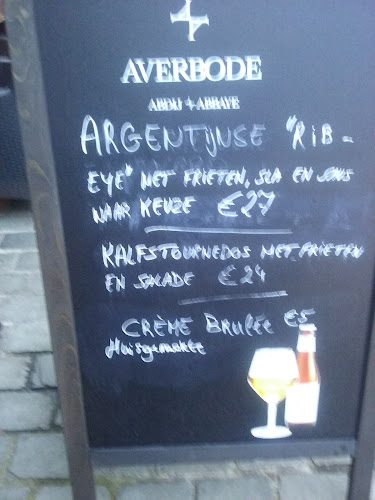 AVERBODE
ABDIJ ABBAYE
ARGENTIJNSE "RIB-
EYE" MET FRIETEN, SLA EN SAUS
NAAR KEUZE €27
KALFSTOURNEDOS MET FRIETEN
EN SALADE €24
CRÈME BRULÉE €5
Huisgemaakte